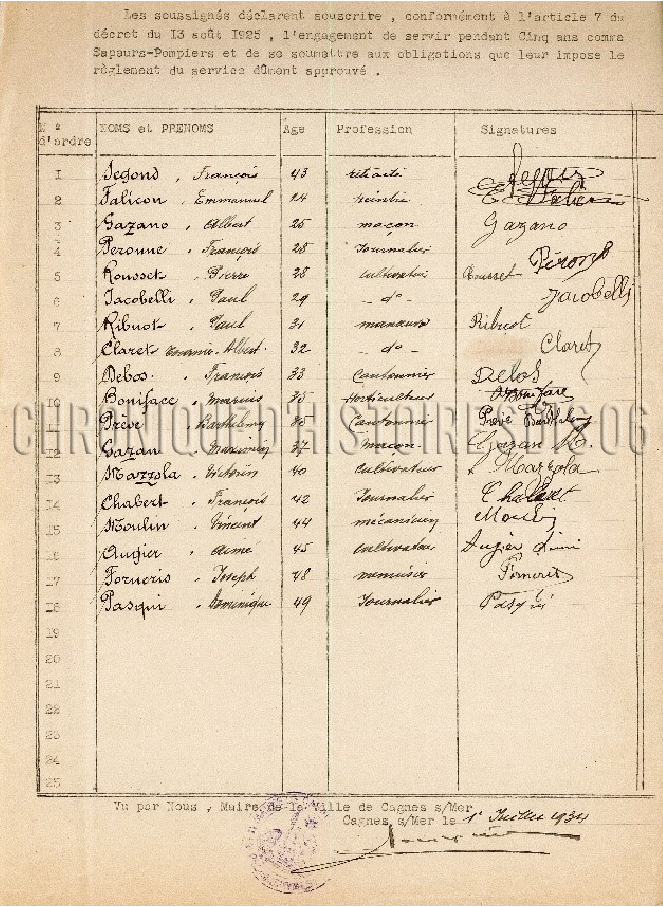 Les soussignés déclarent souscrire , conformément à l'article 7 du
décret du I3 août I925 , l'engagement de servir pendant Cinq ans comme
Sapeurs-Pompiers et de se soumettre aux obligations que leur impose le
règlement du service dûment approuvé .
N° d'ordre NOMS et PRENOMS Age Profession Signatures
I Segond , François 43 retraité
2 Falicon , Emmanuel 24 peintre
3 Gazano , Albert 25 maçon Gazano
4 Peronne , François 28 Journalier
5 Rousset , Pierre 28 cultivateur Rousset
6 Jacobelli , Paul 29 - d° - Jacobelli
7 Ribuot , Paul 31 manœuvre Ribuot
8 Claret Albert 32 - d° - Claret
9 Debos , François 33 Cantonnier Debos
IO Boniface , Marius 35 Horticulteur Boniface
II Prève , Barthélemy 36 Cantonnier Prève Barthélemy
I2 Gazan , Maximin 37 maçon Gazan M.
I3 Mazzola , Victorin 40 cultivateur Mazzola
I4 Chabert , François 42 Journalier Chabert
I5 Moulin , Vincent 44 mécanicien Moulin
I6 Augier , Aimé 45 cultivateur Augier Aimé
I7 Forneris , Joseph 48 menuisier Forneris
I8 Pasqui , Dominique 49 Journalier Pasqui
I9
20
21
22
23
24
25
Vu par Nous , Maire de la Ville de Cagnes s/Mer
Cagnes s/Mer le 1er Juillet 1934
CHRONIQUEDHISTOIRES1606